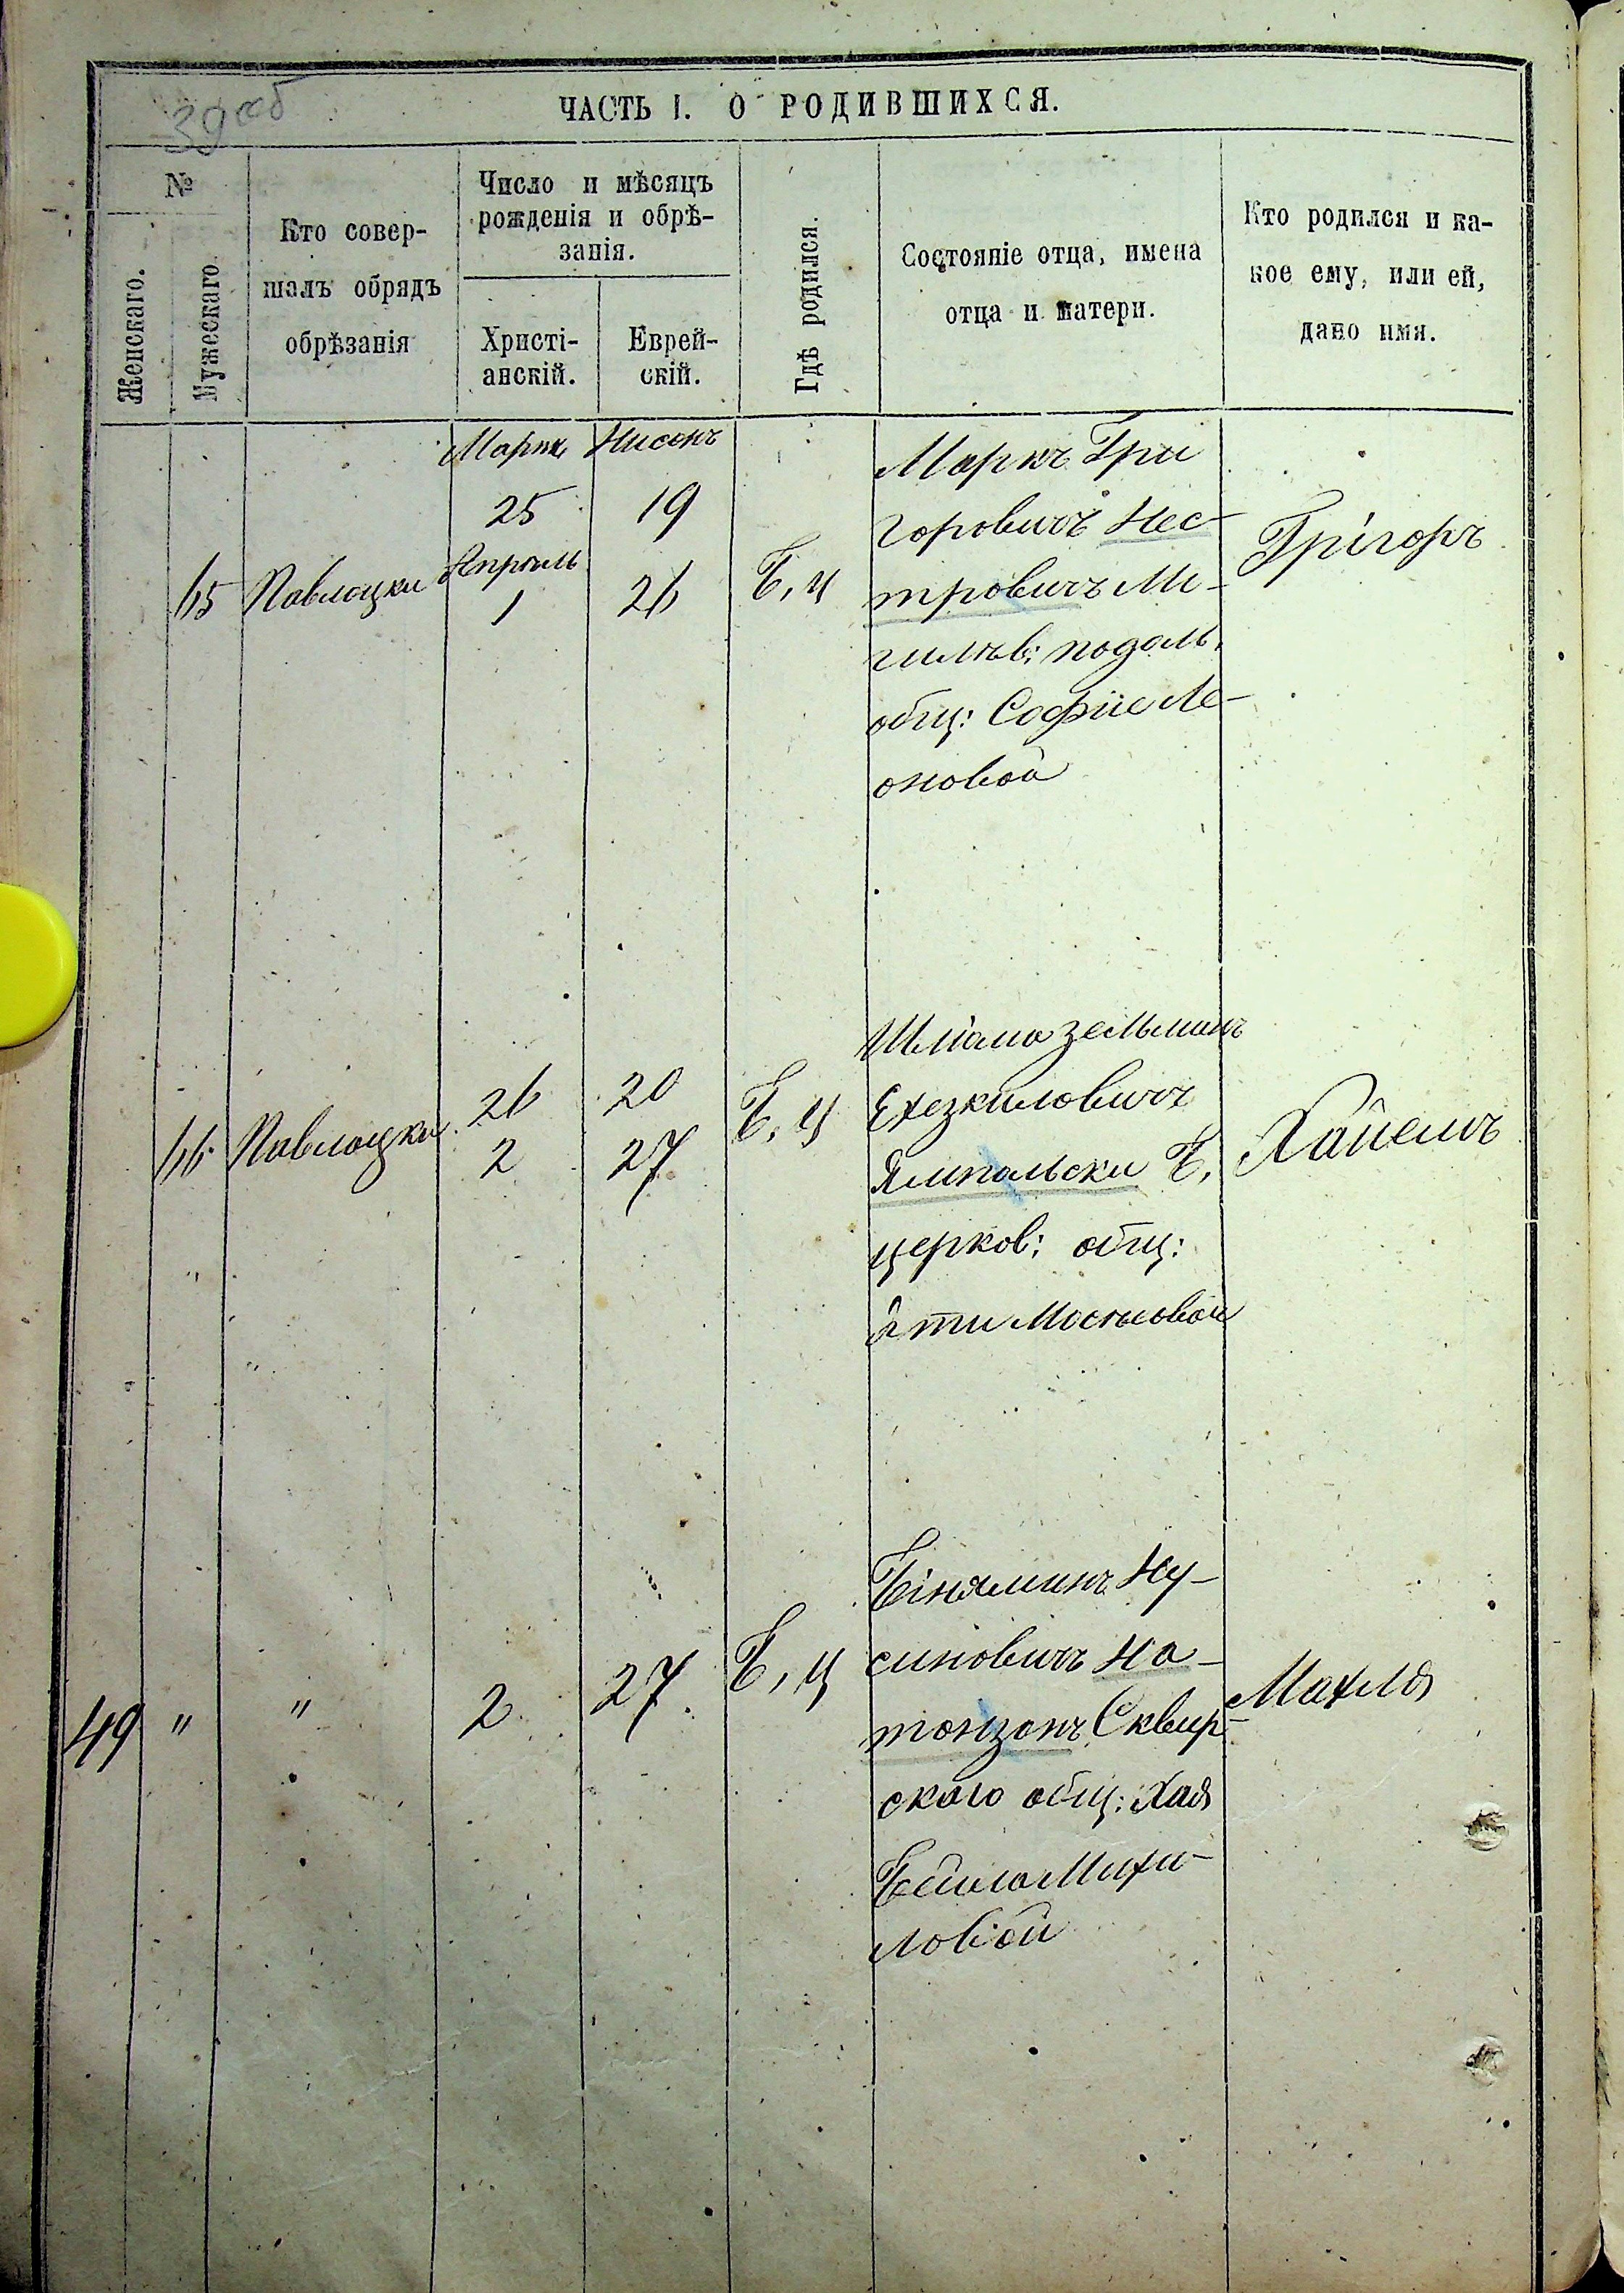 39 об
ЧАСТЬ I. О РОДИВШИХСЯ.
№
Женскаго.
Мужескаго.
Кто совер-
шалъ обрядъ
обрѣзанія
Число и мѣсяцъ
рожденія и обрѣ-
занія.
Христі-
анскій.
Еврей-
скій.
Гдѣ родился.
Состояніе отца, имена
отца и матери.
Кто родился и ка-
кое ему, или ей,
дано имя.
65
Павлоцки
Мартъ
25
Апрель
1
Нисонъ
19
26
Б, ц
Маркъ Гри
горовичъ Нес-
тровичъ Мо-
гилев: подоль.
общ: Софiе Ле-
оновой
Грігоръ
66
Павлоцки
26
2
20
27
Б, ц
Шліома Зельманъ
Ехезкиловичъ
Ямпольски Б,
церков: общ:
Эти Мостовой
Хаїемъ
49
"
"
2
27
Б, ц
Біняминъ Ну-
синовичъ На-
танзонъ Сквир-
скаго общ: Хая
Бейла Михи-
ловой
Махля